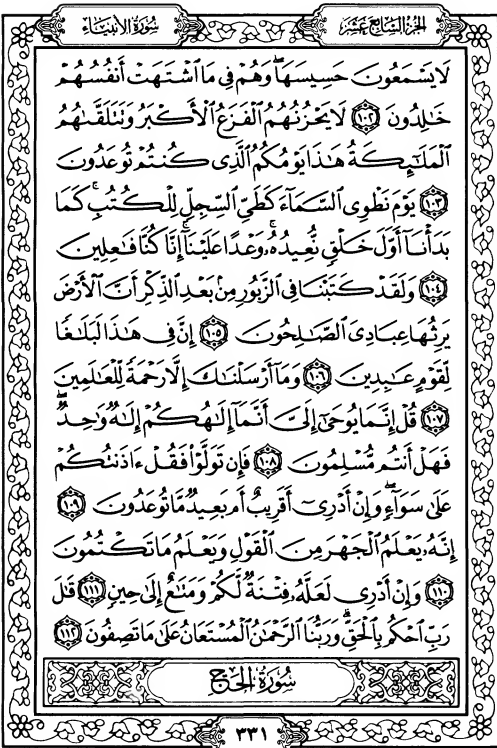 سُورَةُ الأَنبِيَاءِ
الجُزءُ السَّابِع عَشَر
لَا يَسْمَعُونَ حَسِيسَهَا ۖ وَهُمْ فِي مَا ٱشْتَهَتْ أَنفُسُهُمْ
خَٰلِدُونَ ١٠٢ لَا يَحْزُنُهُمُ ٱلْفَزَعُ ٱلْأَكْبَرُ وَتَتَلَقَّىٰهُمُ
ٱلْمَلَٰٓئِكَةُ هَٰذَا يَوْمُكُمُ ٱلَّذِي كُنتُمْ تُوعَدُونَ
١٠٣ يَوْمَ نَطْوِي ٱلسَّمَآءَ كَطَيِّ ٱلسِّجِلِّ لِلْكُتُبِ ۚ كَمَا
بَدَأْنَآ أَوَّلَ خَلْقٍ نُّعِيدُهُۥ ۚ وَعْدًا عَلَيْنَآ ۚ إِنَّا كُنَّا فَٰعِلِينَ
١٠٤ وَلَقَدْ كَتَبْنَا فِي ٱلزَّبُورِ مِنۢ بَعْدِ ٱلذِّكْرِ أَنَّ ٱلْأَرْضَ
يَرِثُهَا عِبَادِيَ ٱلصَّٰلِحُونَ ١٠٥ إِنَّ فِي هَٰذَا لَبَلَٰغًا
لِّقَوْمٍ عَٰبِدِينَ ١٠٦ وَمَآ أَرْسَلْنَٰكَ إِلَّا رَحْمَةً لِّلْعَٰلَمِينَ
١٠٧ قُلْ إِنَّمَا يُوحَىٰٓ إِلَيَّ أَنَّمَآ إِلَٰهُكُمْ إِلَٰهٌ وَٰحِدٌ ۖ
فَهَلْ أَنتُم مُّسْلِمُونَ ١٠٨ فَإِن تَوَلَّوْا۟ فَقُلْ ءَاذَنتُكُمْ
عَلَىٰ سَوَآءٍ ۖ وَإِنْ أَدْرِيٓ أَقَرِيبٌ أَم بَعِيدٌ مَّا تُوعَدُونَ ١٠٩
إِنَّهُۥ يَعْلَمُ ٱلْجَهْرَ مِنَ ٱلْقَوْلِ وَيَعْلَمُ مَا تَكْتُمُونَ
١١٠ وَإِنْ أَدْرِي لَعَلَّهُۥ فِتْنَةٌ لَّكُمْ وَمَتَٰعٌ إِلَىٰ حِينٍ ١١١ قَٰلَ
رَبِّ ٱحْكُم بِٱلْحَقِّ ۗ وَرَبُّنَا ٱلرَّحْمَٰنُ ٱلْمُسْتَعَانُ عَلَىٰ مَا تَصِفُونَ ١١٢
سُورَةُ الحَجِّ
٣٣١